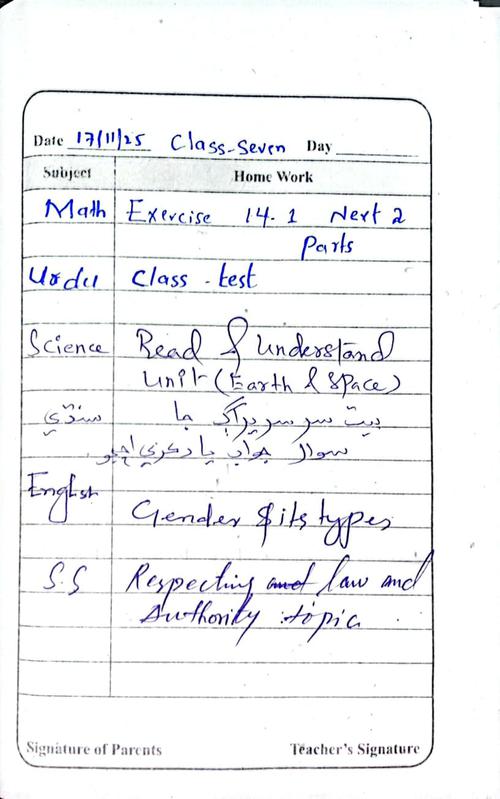 Date 17/11/25 Class-Seven Day
Subject Home Work
Math Exercise 14.1 Next 2
Parts
Urdu Class - test
Science Read & Understand
Unit (Earth & Space)
سنڌي بيت سر سريراڳ جا
سوال جواب ياد ڪري اچو.
English
Gender & its types
S.S Respecting and law and
Authority topic
Signature of Parents Teacher's Signature